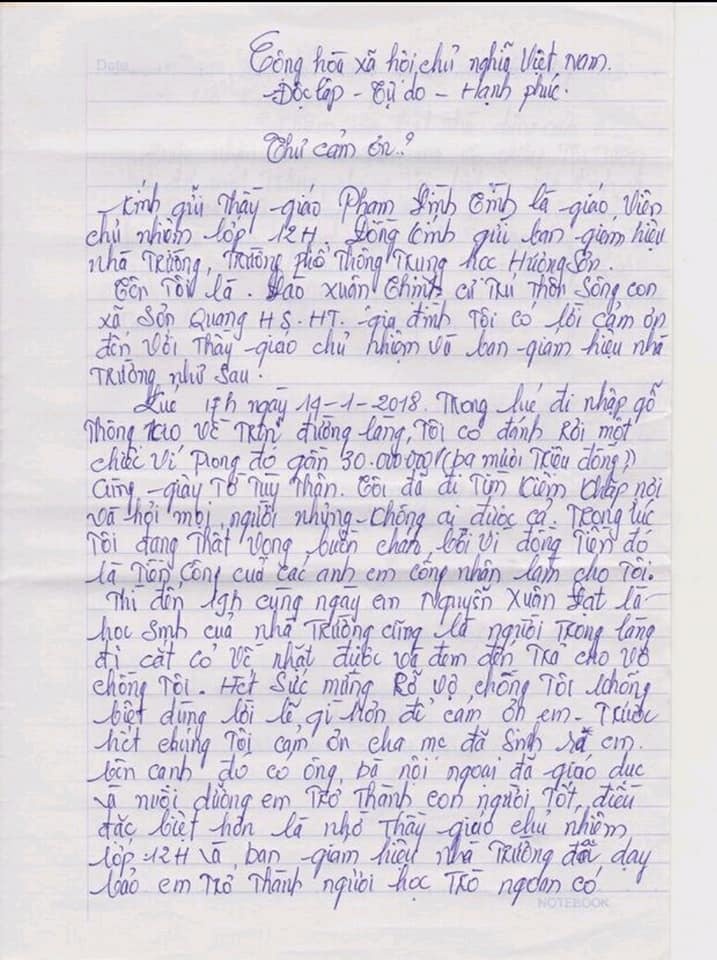 Date
Cộng hòa xã hội chủ nghĩa Việt Nam.
-Độc lập - Tự do - Hạnh phúc.
Thư cảm ơn..?
Kính gửi thầy -giáo Phạm Đình Tình là -giáo viên
chủ nhiệm lớp 12H Đồng kính gửi ban -giám hiệu
nhà Trường, Trường phổ Thông Trung học Hương Sơn.
Tên Tôi là. Đào Xuân Chinh cư Trú Thôn Sông con
xã Sơn Quang HS.HT. -gia đình Tôi có lời cảm ơn
đến với Thầy -giáo chủ nhiệm và ban -giám hiệu nhà
Trường như sau.
Lúc 17h ngày 14-1-2018. Trong lúc đi nhập gỗ
Thông về Trên đường làng, Tôi có đánh rơi một
chiếc ví Trong đó gần 30.000.000đ (ba mươi Triệu đồng)
Cùng -giấy Tờ Tùy Thân. Tôi đã đi Tìm kiếm khắp nơi
và hỏi mọi người nhưng -không ai được cả. Trong lúc
Tôi đang Thất vọng, buồn chán, bởi vì đồng Tiền đó
là Tiền công của các anh em công nhân làm cho Tôi.
Thì đến 19h cùng ngày em Nguyễn Xuân Đạt là
học sinh của nhà Trường cũng là người Trong làng
đi cắt cỏ về nhặt được và đem đến Trả cho vợ
chồng Tôi. Hết sức mừng Rỡ vợ chồng Tôi không
biết dùng lời lẽ gì hơn để cảm ơn em. Trước
hết chúng Tôi cảm ơn cha mẹ đã sinh ra em.
bên cạnh đó có ông, bà nội ngoại đã -giáo dục
và nuôi dưỡng em Trở Thành con người Tốt, điều
đặc biệt hơn là nhờ Thầy -giáo chủ nhiệm
lớp 12H và ban -giám hiệu nhà Trường đã dạy
bảo em Trở Thành người học Trò ngoan có
NOTEBOOK